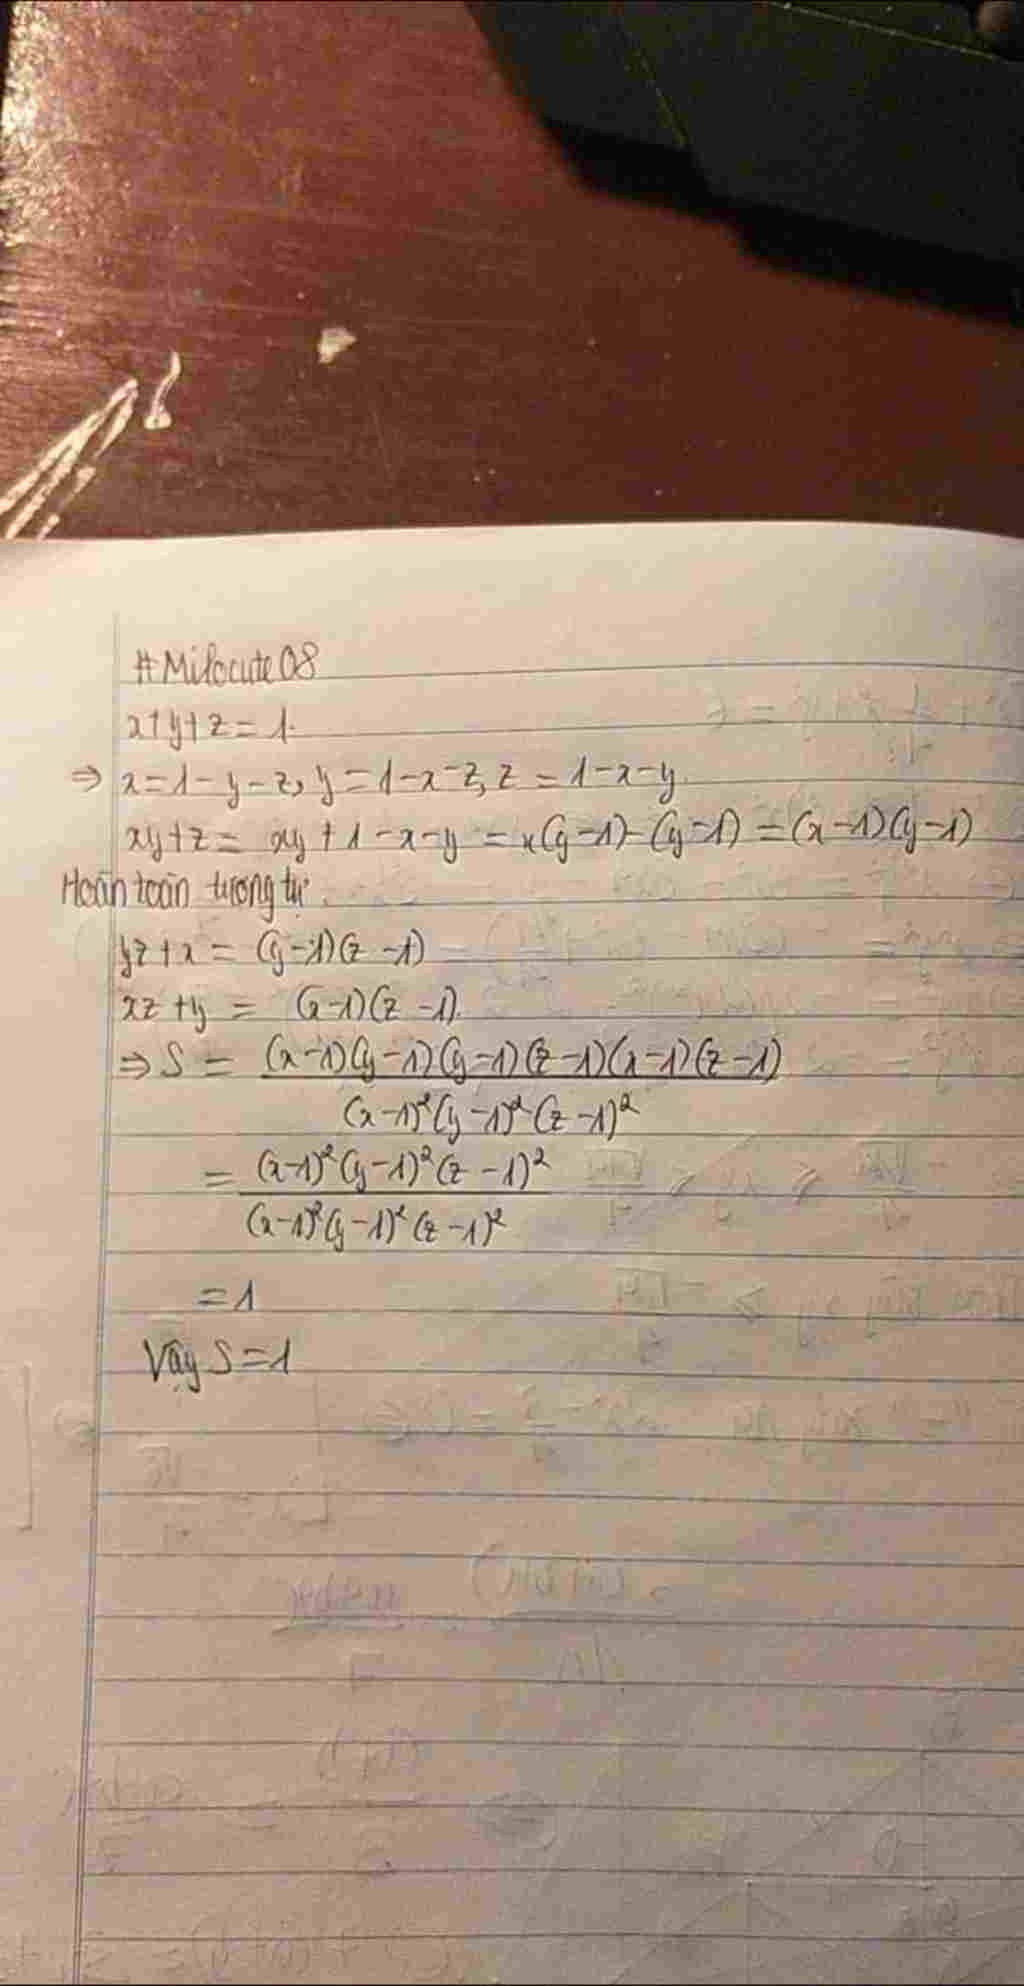 #Milocute08
x+y+z=1.
⇒ x=1-y-z, y=1-x-z, z=1-x-y.
xy+z= xy+1-x-y = x(y-1)-(y-1) = (x-1)(y-1)
Hoàn toàn tương tự.
yz+x = (y-1)(z-1)
xz+y = (x-1)(z-1).
⇒ S = (x-1)(y-1)(y-1)(z-1)(x-1)(z-1)
(x-1)²(y-1)²(z-1)²
= (x-1)²(y-1)²(z-1)²
(x-1)²(y-1)²(z-1)²
=1
Vậy S=1